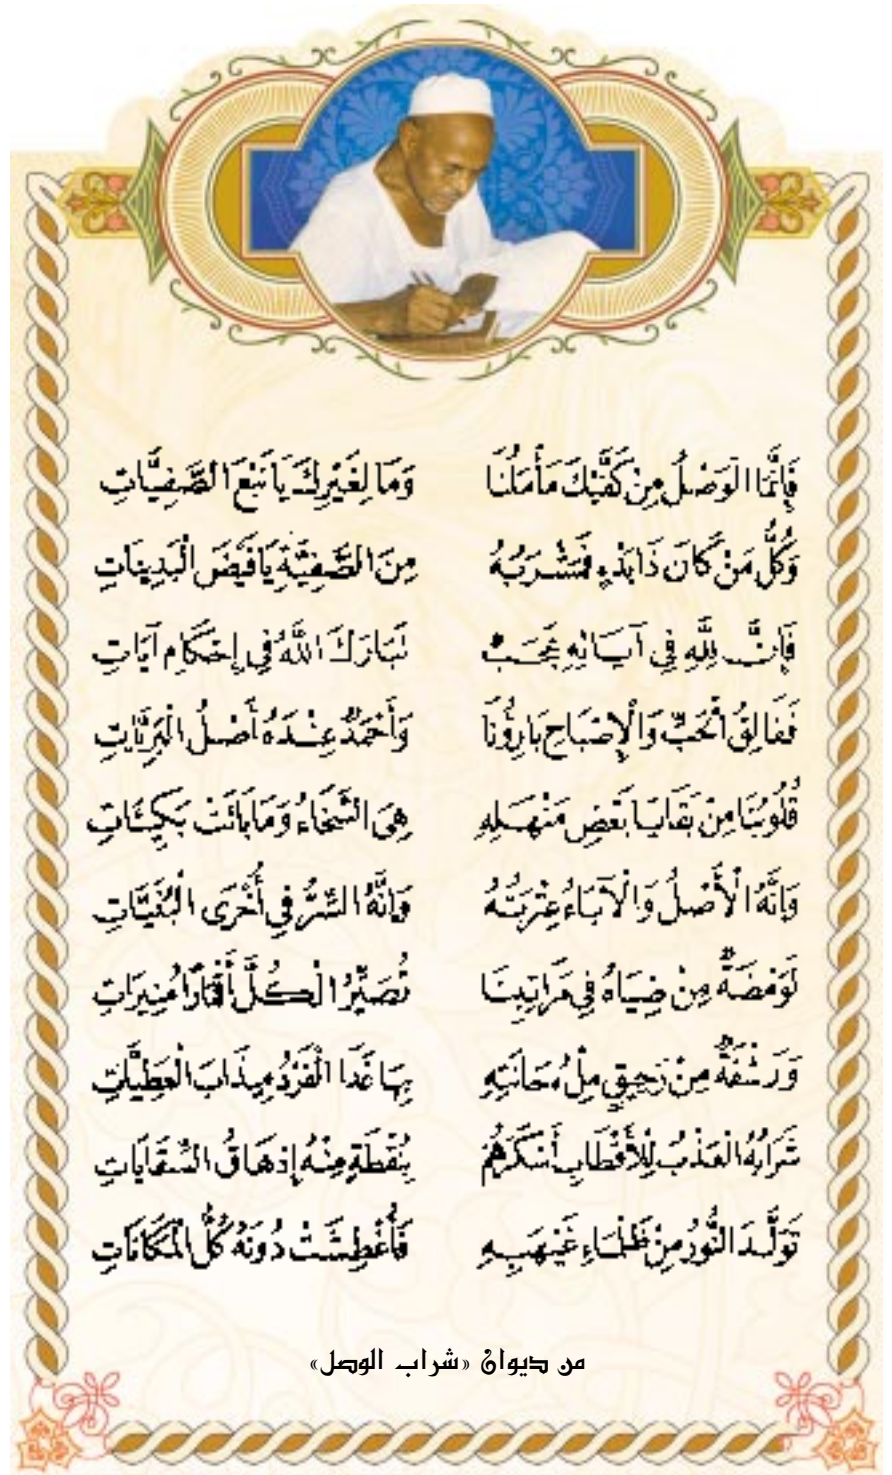 فَإِنَّمَا الْوَصْلُ مِنْ كَفَّيْكَ مَأْمَلُنَا وَمَا لِغَيْرِكَ يَا نَبْعَ الصَّفِيَّاتِ
وَكُلُّ مَنْ كَانَ ذَا بَدْءٍ فَمَشْرَبُهُ مِنَ الصَّفِيَّةِ يَا فَيْضَ الْبَدِيهَاتِ
فَإِنَّ لِلَّهِ فِي آيَاتِهِ عَجَبٌ تَبَارَكَ اللَّهُ فِي إِحْكَامِ آيَاتِ
فَفَالِقُ الْحَبِّ وَالْإِصْبَاحِ بَارِؤُنَا وَأَحْمَدٌ عِنْدَهُ أَصْلُ الْبَرِيَّاتِ
قُلُوبُنَا مِنْ بَقَايَا بَعْضِ مَنْهَلِهِ هِيَ السَّخَاءُ وَمَا بَاتَتْ بَكِيئَاتِ
وَإِنَّهُ الْأَصْلُ وَالْآبَاءُ عِتْرَتُهُ وَإِنَّهُ السِّرُّ فِي أُخْرَى الْبُنَيَّاتِ
لَوَمْضَةٌ مِنْ ضِيَاهُ فِي مَرَاتِبِنَا تُصَيِّرُ الْكُلَّ أَقْمَارًا مُنِيرَاتِ
وَرَشْفَةٌ مِنْ رَحِيقٍ مِلْءُ حَانَتِهِ بِهَا غَدَا الْفَرْدُ مِيذَابَ الْعَطِيَّاتِ
شَرَابُهُ الْعَذْبُ لِلْأَقْطَابِ أَسْكَرَهُمْ بِنُقْطَةٍ مِنْهُ إِدْهَاقُ السِّقَايَاتِ
تَوَلَّدَ النُّورُ مِنْ ظَلْمَاءِ غَيْهَبِهِ فَأُغْطِشَتْ دُونَهُ كُلُّ الْمَكَانَاتِ
من ديوان «شراب الوصل»